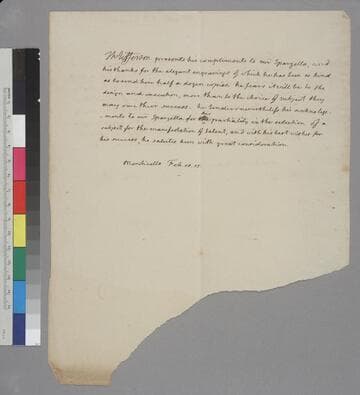 Th: Jefferson presents his compliments to mr Spargella, and
his thanks for the elegant engravings of which he has been so kind
as to send him half a dozen copies. he fears it will be to the
design and execution, more than to the choice of subject they
may owe their success. he tenders nevertheless his acknolege-
-ments to mr Spargella for his partiality in the selection of a
subject for the manifestation of talent, and with his best wishes for
his success, he salutes him with great consideration.
Monticello Feb.